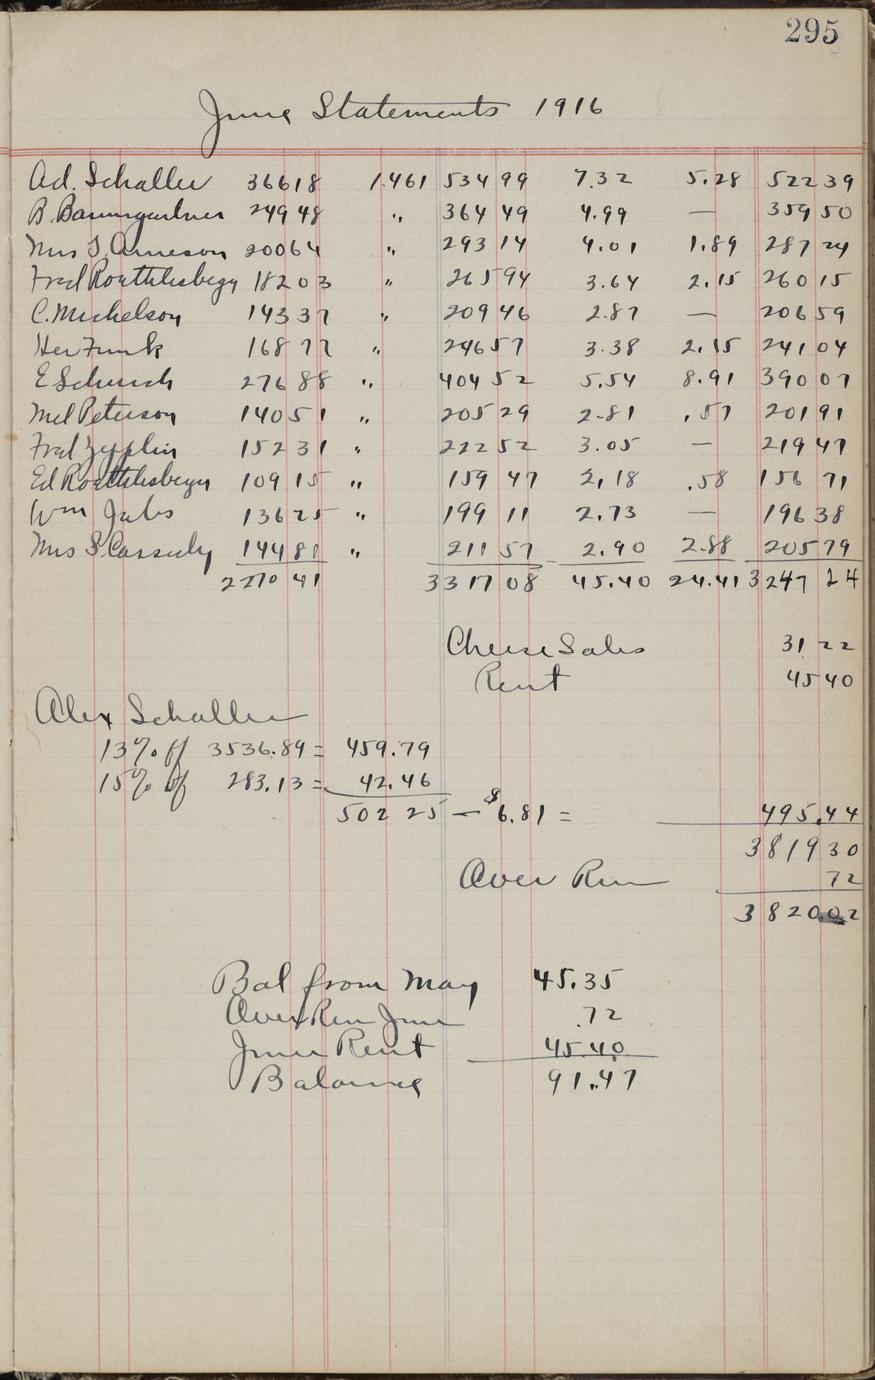 295
June Statements 1916
Ad. Schaller 36618 1.461 534 99 7.32 5.28 522 39
B. Baumgartner 24948 " 364 49 4.99 — 359 50
Mrs S. Arneson 20064 " 293 14 4.01 1.89 287 24
Fred Roethlisberger 18203 " 265 94 3.64 2.15 260 15
C. Michelson 14337 " 209 46 2.87 — 206 59
Her Funk 16877 " 246 57 3.38 2.15 241 04
E Schurch 27688 " 404 52 5.54 8.91 390 07
Mel Peterson 14051 " 205 29 2.81 .57 201 91
Fred Zepplin 15231 " 222 52 3.05 — 219 47
Ed Roethlisberger 10915 " 159 47 2.18 .58 156 71
Wm Jabs 13625 " 199 11 2.73 — 196 38
Mrs S. Cassidy 14481 " 211 57 2.90 2.88 205 79
2270 41 3317 08 45.40 24.41 3247 24
Cheese Sales 31 22
Rent 45 40
Alex Schaller
13% of 3536.89 = 459.79
15% of 283.13 = 42.46
502 25 — $6.81 = 495.44
3819 30
Over Run 72
3820 02
Bal from May 45.35
Over Run June .72
June Rent 45.40
Balance 91.47